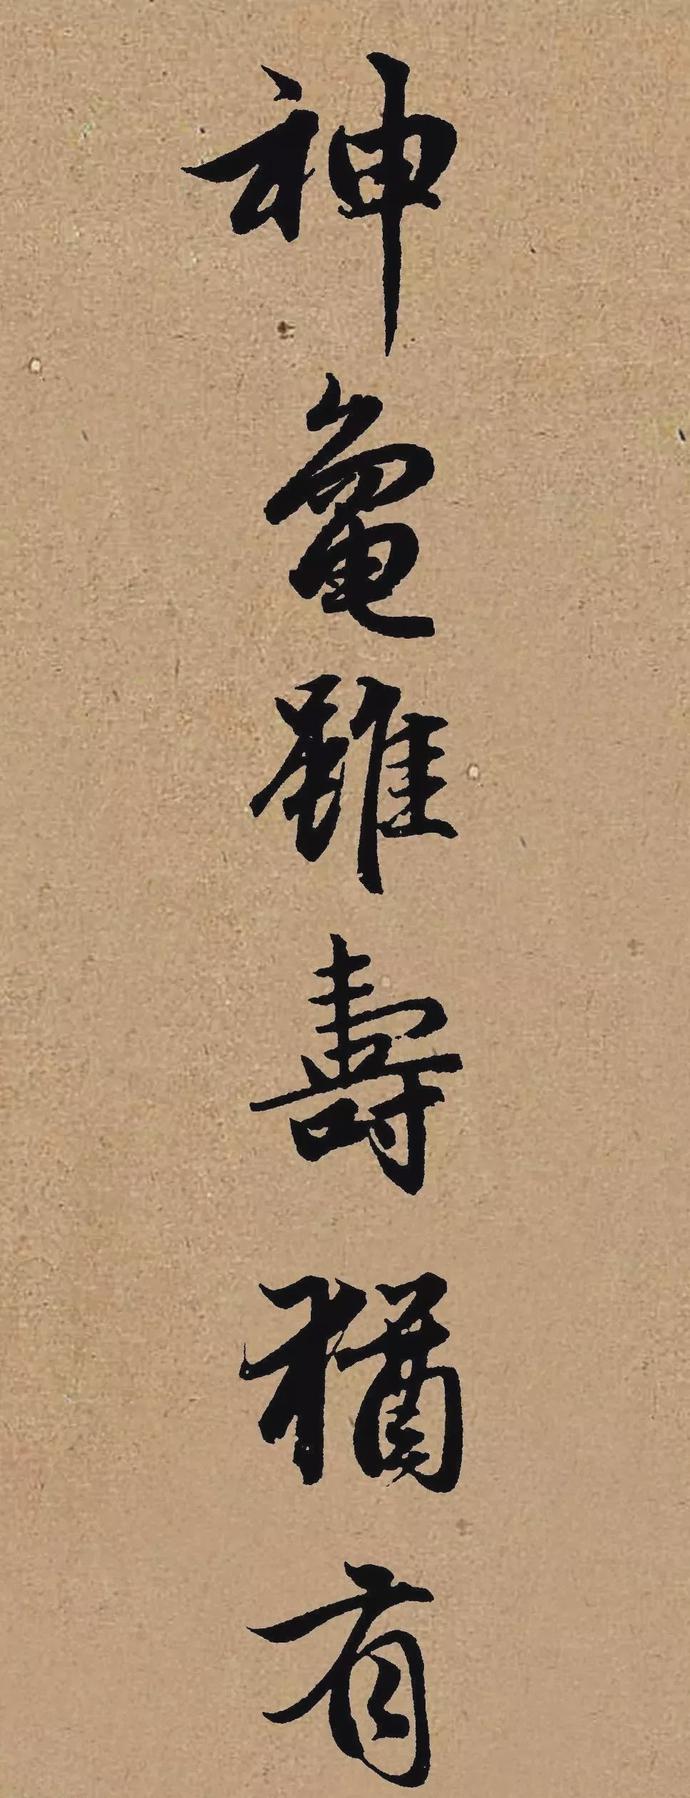 神龜雖壽猶有